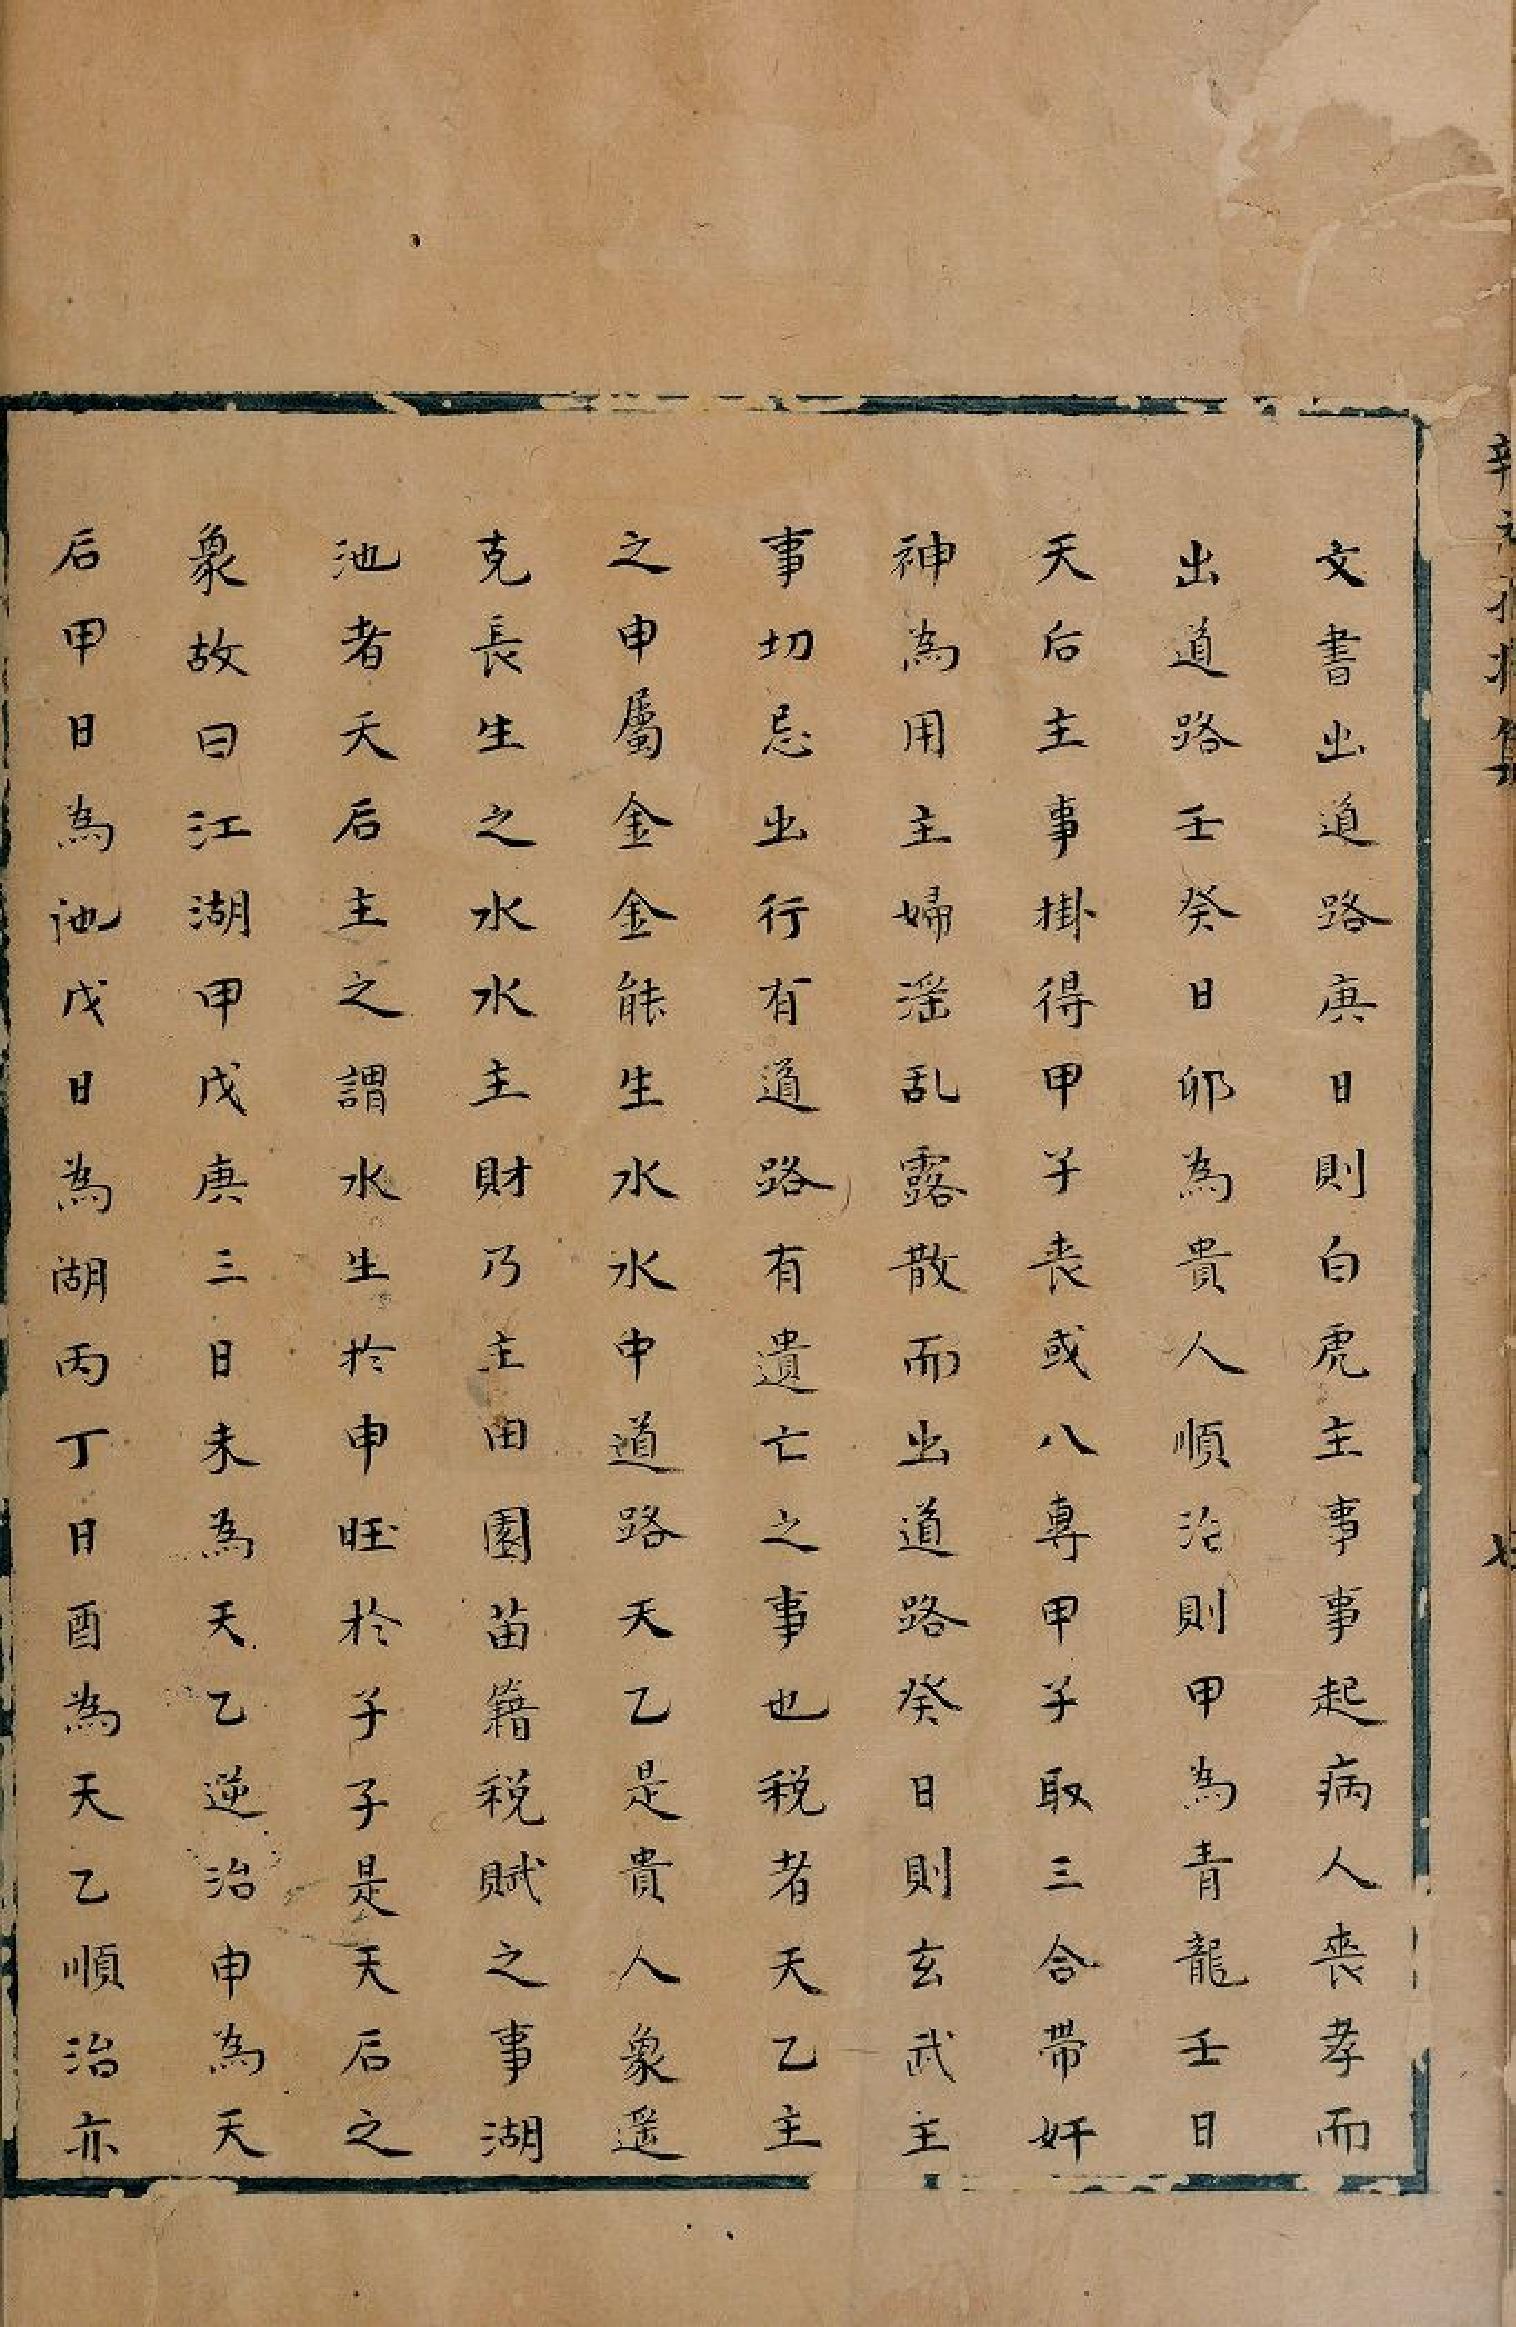 文書出道路庚日則白虎主事事起病人喪孝而
出道路壬癸日卯為貴人順治則甲為青龍壬日
天后主事掛得甲子丧或八專甲子取三合帶奸
神為用主婦滛乱露散而出道路癸日則玄武主
事切忌出行有道路有遺亡之事也税者天乙主
之申屬金金能生水水中道路天乙是貴人象遥
克長生之水水主財乃主田園苗籍税賦之事湖
池者天后主之謂水生於申旺於子子是天后之
象故曰江湖甲戊庚三日未為天乙逆治申為天
后甲日為池戊日為湖丙丁日酉為天乙順治亦
集